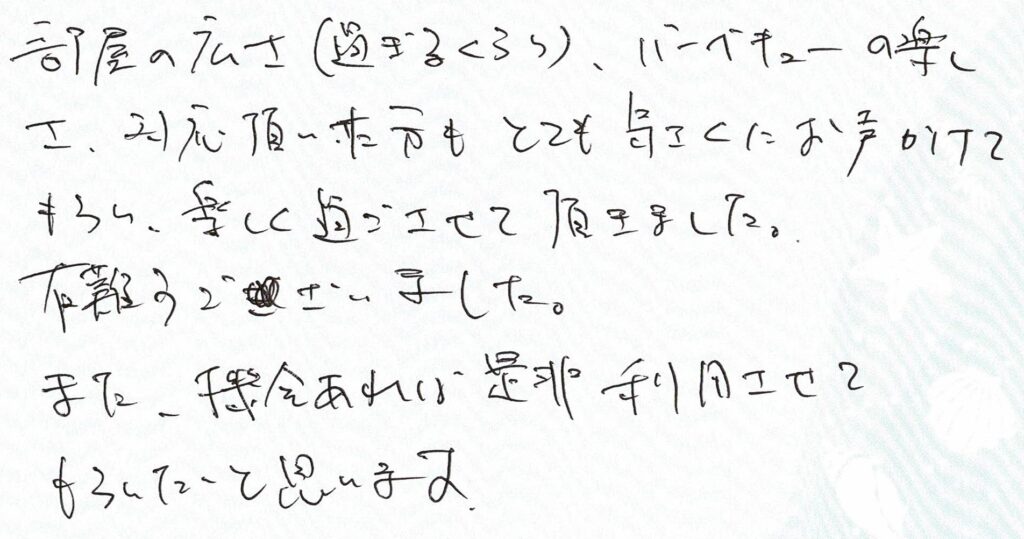 部屋の広さ(過ぎるくらい)、バーベキューの楽し
さ、対応頂いた方もとても気さくにお声がけて
もらい、楽しく過ごさせて頂きました。
有難うございました。
また、機会あれば是非利用させて
もらいたいと思います